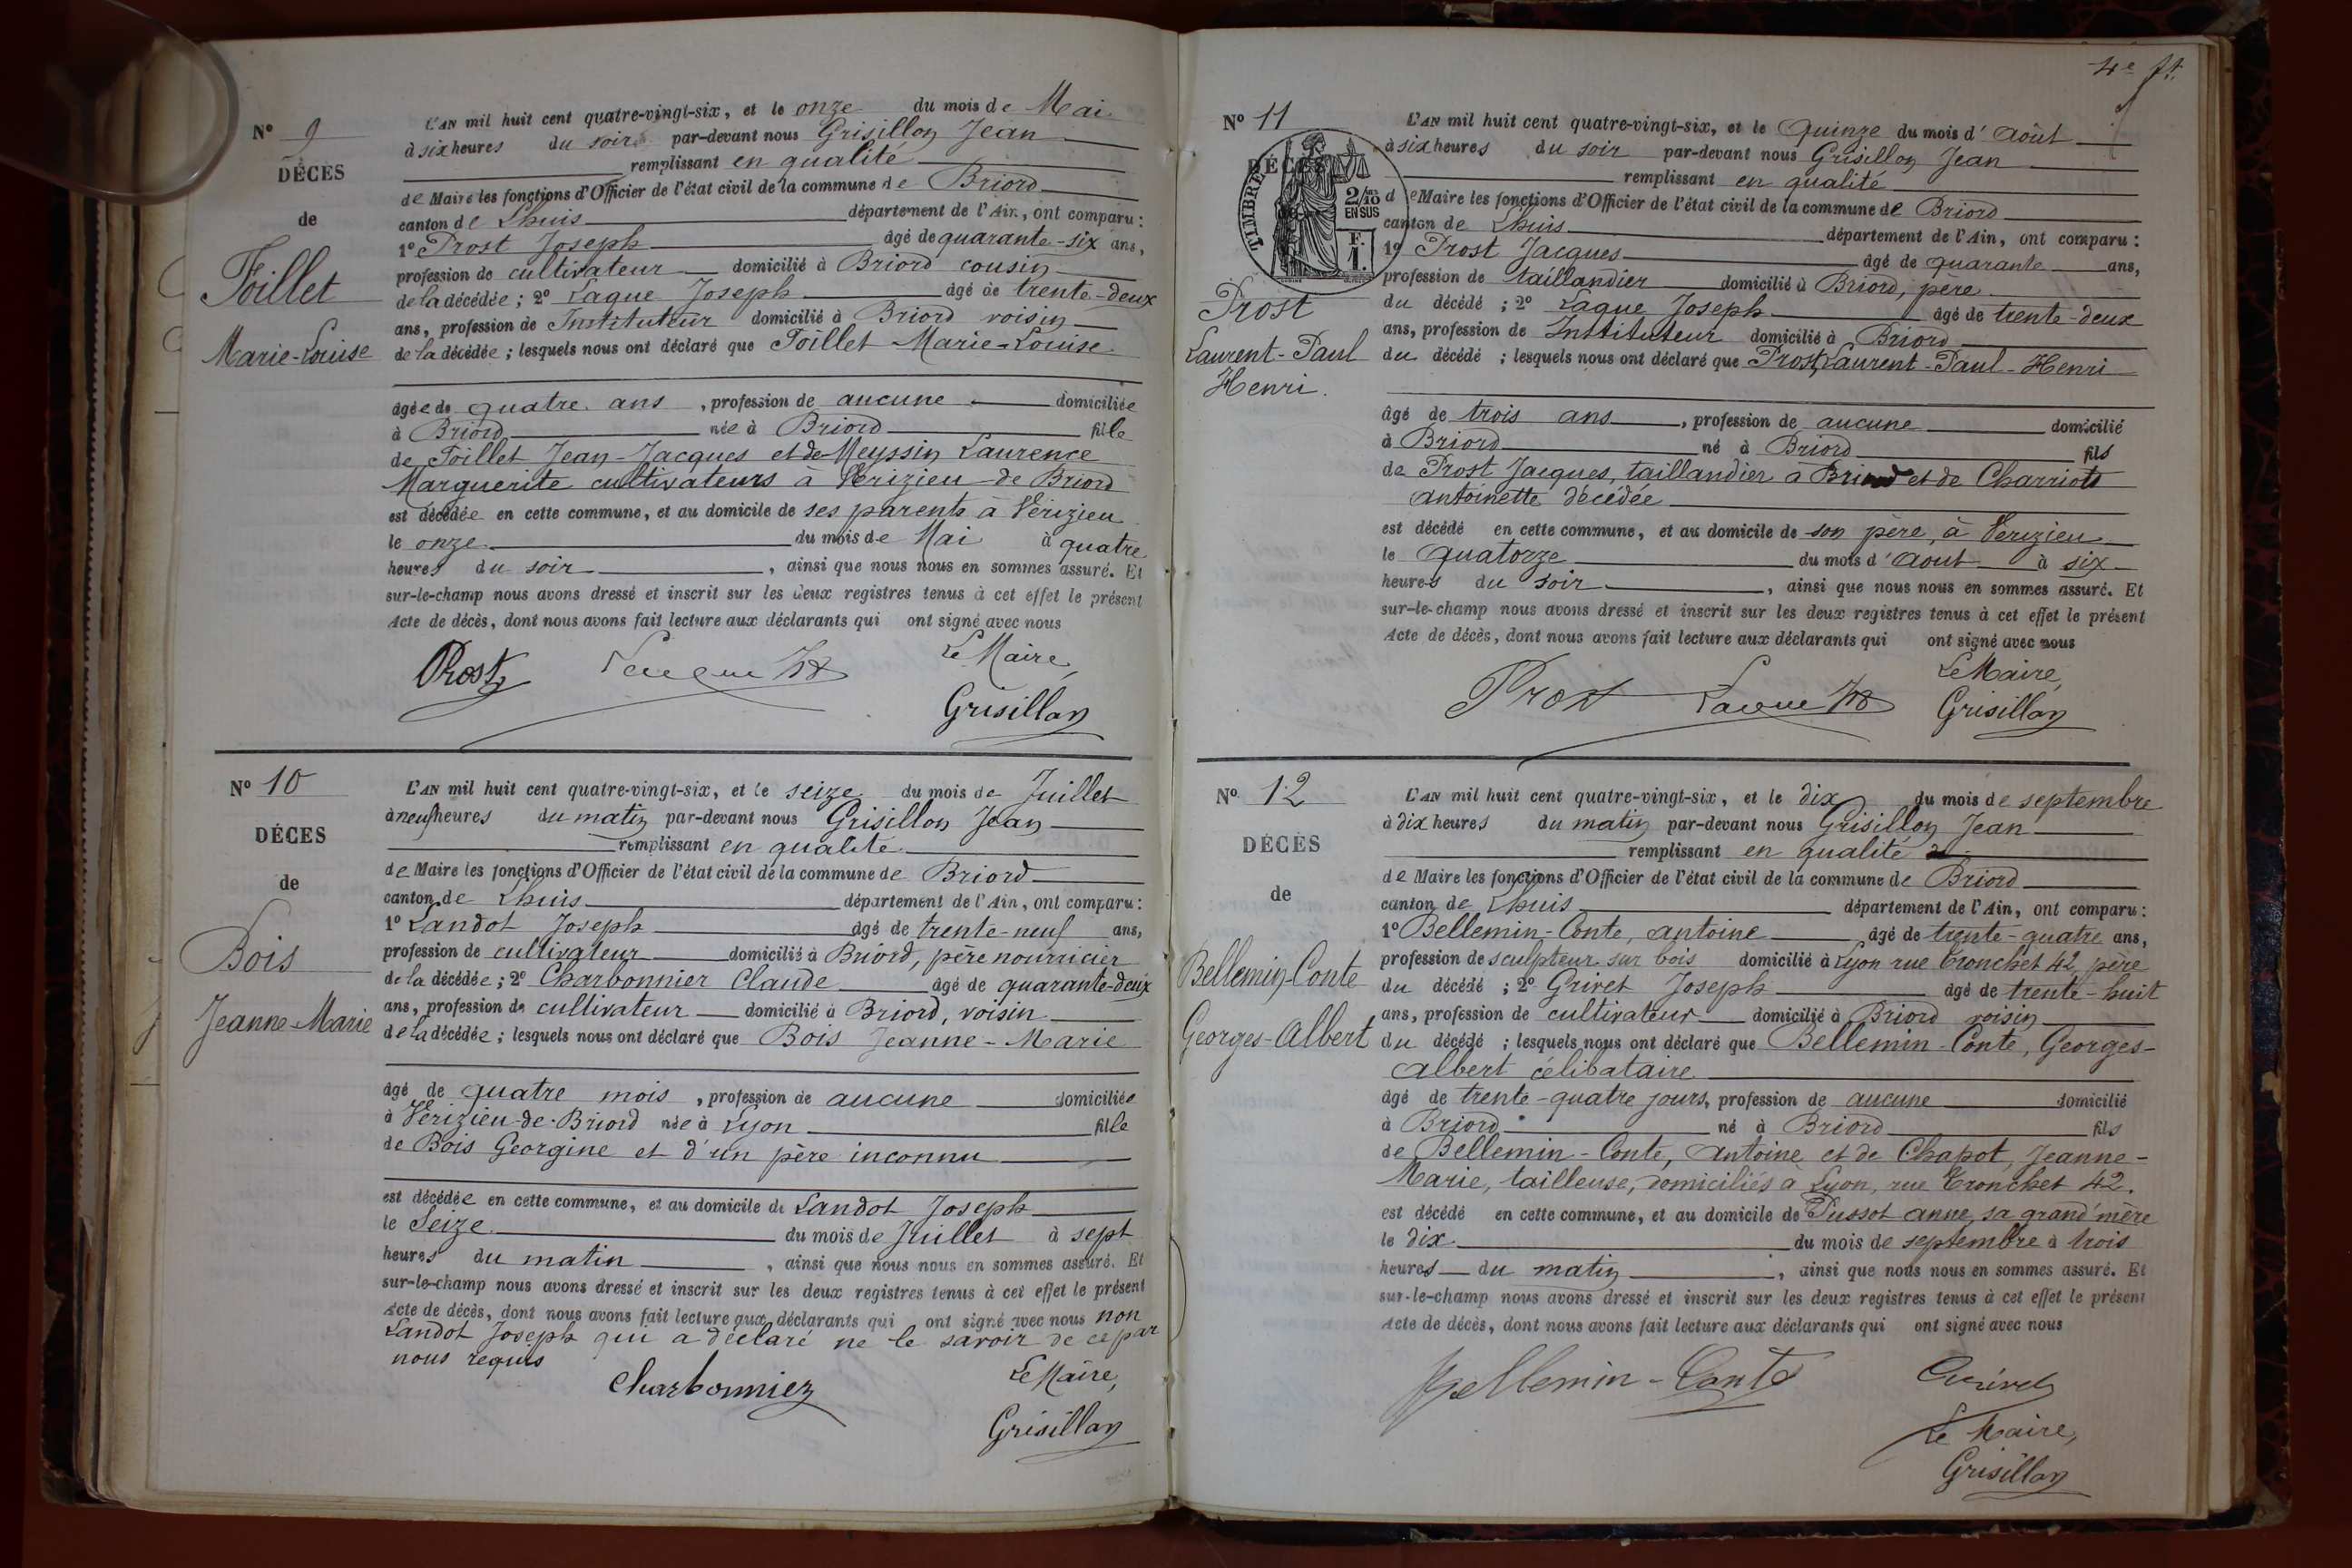 N° 9
DÉCÈS
de
Foillet
Marie-Louise
L'AN mil huit cent quatre-vingt-six, et le onze du mois de Mai
à six heures du soir par-devant nous Grisillon Jean
remplissant en qualité
de Maire les fonctions d'Officier de l'état civil de la commune de Briord
canton de Lhuis département de l'Ain, ont comparu :
1° Prost Joseph âgé de quarante-six ans,
profession de cultivateur domicilié à Briord cousin
de la décédée ; 2° Laque Joseph âgé de trente-deux
ans, profession de Instituteur domicilié à Briord voisin
de la décédée ; lesquels nous ont déclaré que Foillet Marie-Louise
âgée de quatre ans, profession de aucune domiciliée
à Briord née à Briord fille
de Foillet Jean-Jacques et de Meyssin Laurence
Marguerite cultivateurs à Vérizieu de Briord
est décédée en cette commune, et au domicile de ses parents à Vérizieu
le onze du mois de Mai à quatre
heures du soir, ainsi que nous nous en sommes assuré. Et
sur-le-champ nous avons dressé et inscrit sur les deux registres tenus à cet effet le présent
Acte de décès, dont nous avons fait lecture aux déclarants qui ont signé avec nous
Le Maire,
Prost Laque
Grisillon
N° 10
DÉCÈS
de
Bois
Jeanne-Marie
L'AN mil huit cent quatre-vingt-six, et le seize du mois de Juillet
à neuf heures du matin par-devant nous Grisillon Jean
remplissant en qualité
de Maire les fonctions d'Officier de l'état civil de la commune de Briord
canton de Lhuis département de l'Ain, ont comparu :
1° Landot Joseph âgé de trente-neuf ans,
profession de cultivateur domicilié à Briord, père nourricier
de la décédée ; 2° Charbonnier Claude âgé de quarante-deux
ans, profession de cultivateur domicilié à Briord, voisin
de la décédée ; lesquels nous ont déclaré que Bois Jeanne-Marie
âgé de quatre mois, profession de aucune domiciliée
à Vérizieu-de-Briord née à Lyon fille
de Bois Georgine et d'un père inconnu
est décédée en cette commune, et au domicile de Landot Joseph
le Seize du mois de Juillet à sept
heures du matin, ainsi que nous nous en sommes assuré. Et
sur-le-champ nous avons dressé et inscrit sur les deux registres tenus à cet effet le présent
Acte de décès, dont nous avons fait lecture aux déclarants qui ont signé avec nous non
Landot Joseph qui a déclaré ne le savoir de ce par
nous requis
Le Maire,
Charbonnier
Grisillon
4e ft
N° 11
DÉCÈS
de
TIMBRE
2/10 EN SUS
F. 1.
Prost
Laurent-Paul
Henri.
L'AN mil huit cent quatre-vingt-six, et le Quinze du mois d'Août
à six heures du soir par-devant nous Grisillon Jean
remplissant en qualité
de Maire les fonctions d'Officier de l'état civil de la commune de Briord
canton de Lhuis département de l'Ain, ont comparu :
1° Prost Jacques âgé de quarante ans,
profession de taillandier domicilié à Briord, père
du décédé ; 2° Laque Joseph âgé de trente-deux
ans, profession de Instituteur domicilié à Briord
du décédé ; lesquels nous ont déclaré que Prost, Laurent-Paul-Henri
âgé de trois ans, profession de aucune domicilié
à Briord né à Briord fils
de Prost Jacques, taillandier à Briord et de Charriots
Antoinette décédée
est décédé en cette commune, et au domicile de son père, à Vérizieu
le Quatorze du mois d'Aout à six
heures du soir, ainsi que nous nous en sommes assuré. Et
sur-le-champ nous avons dressé et inscrit sur les deux registres tenus à cet effet le présent
Acte de décès, dont nous avons fait lecture aux déclarants qui ont signé avec nous
Le Maire,
Prost Laque
Grisillon
N° 12
DÉCÈS
de
Bellemin-Conte
Georges-Albert
L'AN mil huit cent quatre-vingt-six, et le dix du mois de septembre
à dix heures du matin par-devant nous Grisillon Jean
remplissant en qualité
de Maire les fonctions d'Officier de l'état civil de la commune de Briord
canton de Lhuis département de l'Ain, ont comparu :
1° Bellemin-Conte, Antoine âgé de trente-quatre ans,
profession de sculpteur sur bois domicilié à Lyon rue Tronchet 42, père
du décédé ; 2° Grivet Joseph âgé de trente-huit
ans, profession de cultivateur domicilié à Briord voisin
du décédé ; lesquels nous ont déclaré que Bellemin-Conte, Georges-
Albert célibataire
âgé de trente-quatre jours, profession de aucune domicilié
à Briord né à Briord fils
de Bellemin-Conte, Antoine et de Chapot, Jeanne-
Marie, tailleuse, domiciliés à Lyon, rue Tronchet 42.
est décédé en cette commune, et au domicile de Pussot Anne, sa grand'mère
le dix du mois de septembre à trois
heures du matin, ainsi que nous nous en sommes assuré. Et
sur-le-champ nous avons dressé et inscrit sur les deux registres tenus à cet effet le présent
Acte de décès, dont nous avons fait lecture aux déclarants qui ont signé avec nous
Bellemin-Conte Grivet
Le Maire,
Grisillon